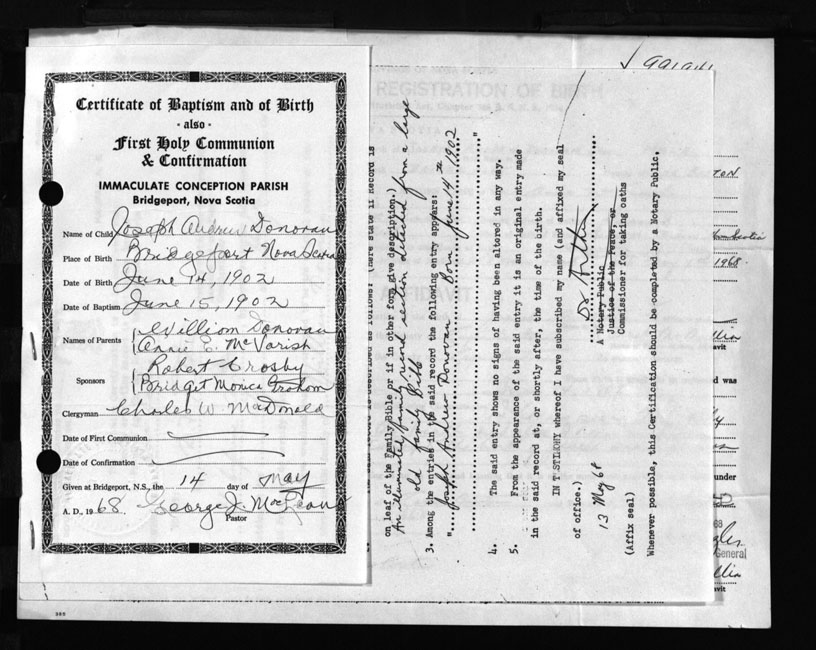 Certificate of Baptism and of Birth
- also -
First Holy Communion
& Confirmation
IMMACULATE CONCEPTION PARISH
Bridgeport, Nova Scotia
Name of Child Joseph Andrew Donovan
Place of Birth Bridgeport Nova Scotia
Date of Birth June 14, 1902
Date of Baptism June 15, 1902
Names of Parents William Donovan
Annie E. McVarish
Sponsors Robert Crosby
Bridget Monica Graham
Clergyman Charles W MacDonald
Date of First Communion
Date of Confirmation
Given at Bridgeport, N.S., the 14 day of May
A. D., 1968. George J. MacLean
Pastor
385
(here state if Record is
on leaf of the Family Bible or if in other form give description.)
An illuminated family record section detached from a large
old family Bible
3. Among the entries in the said record the following entry appears:
"Joseph Andrew Donovan Born June 14th 1902
"
4. The said entry shows no signs of having been altered in any way.
5. From the appearance of the said entry it is an original entry made
in the said record at, or shortly after, the time of the birth.
IN TESTIMONY whereof I have subscribed my name (and affixed my seal
of office.)
13 May 68
A Notary Public
Justice of the Peace, or
Commissioner for taking oaths
(Affix seal)
Whenever possible, this Certification should be completed by a Notary Public.
REGISTRATION OF BIRTH
1968
avit
d was
under
68
General
avit